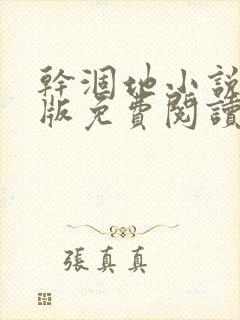 幹涸地小說
版免費閱讀
張真真